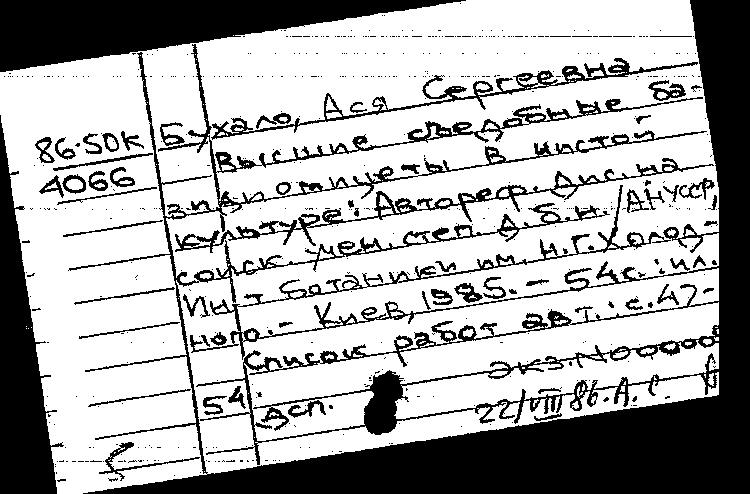 86-50К Бухало, Ася Сергеевна.
4066 Высшие съедобные ба-
зидиомицеты в чистой
культуре: Автореф. Дис. на
соиск. учен. степ. д.б.н. / АН УССР,
Ин-т ботаники им. Н.Г. Холод-
ного. - Киев, 1985. - 54 с. : ил.
Список работ авт. : с. 47-
54.
экз. N00000
Дсп.
22/VIII 86. А. С.